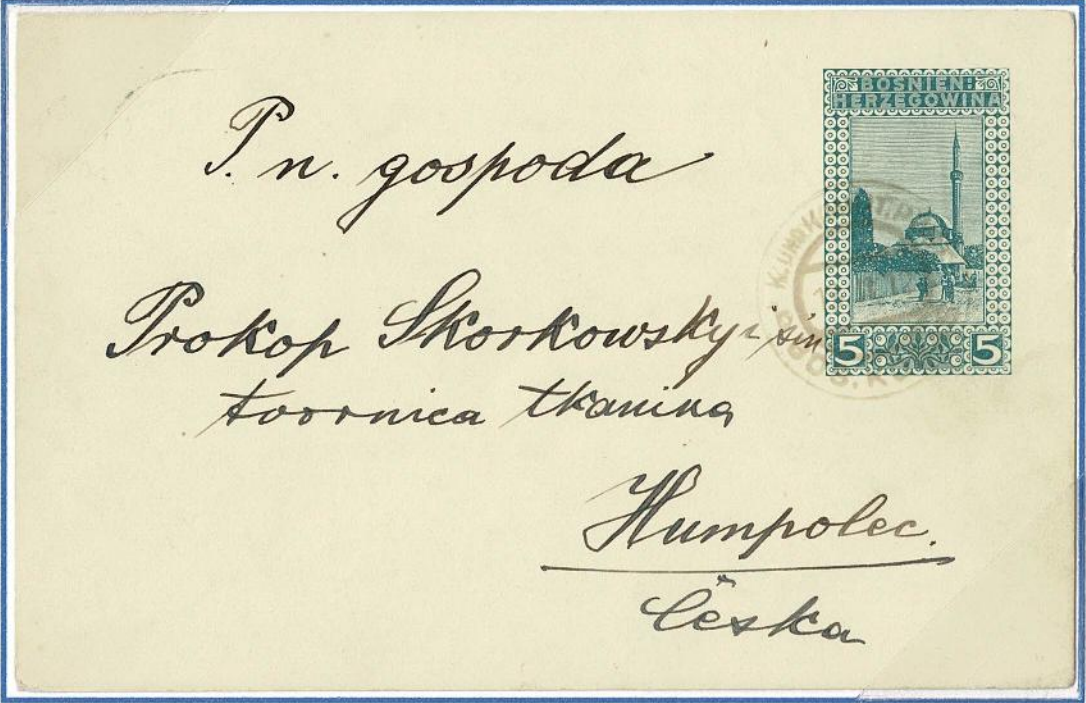 BOSNIEN-
HERZEGOWINA
P. n. gospoda
Prokop Skorkowsky i sin
tvornica tkanina
5 5
Humpolec.
Česka
K. UND K.